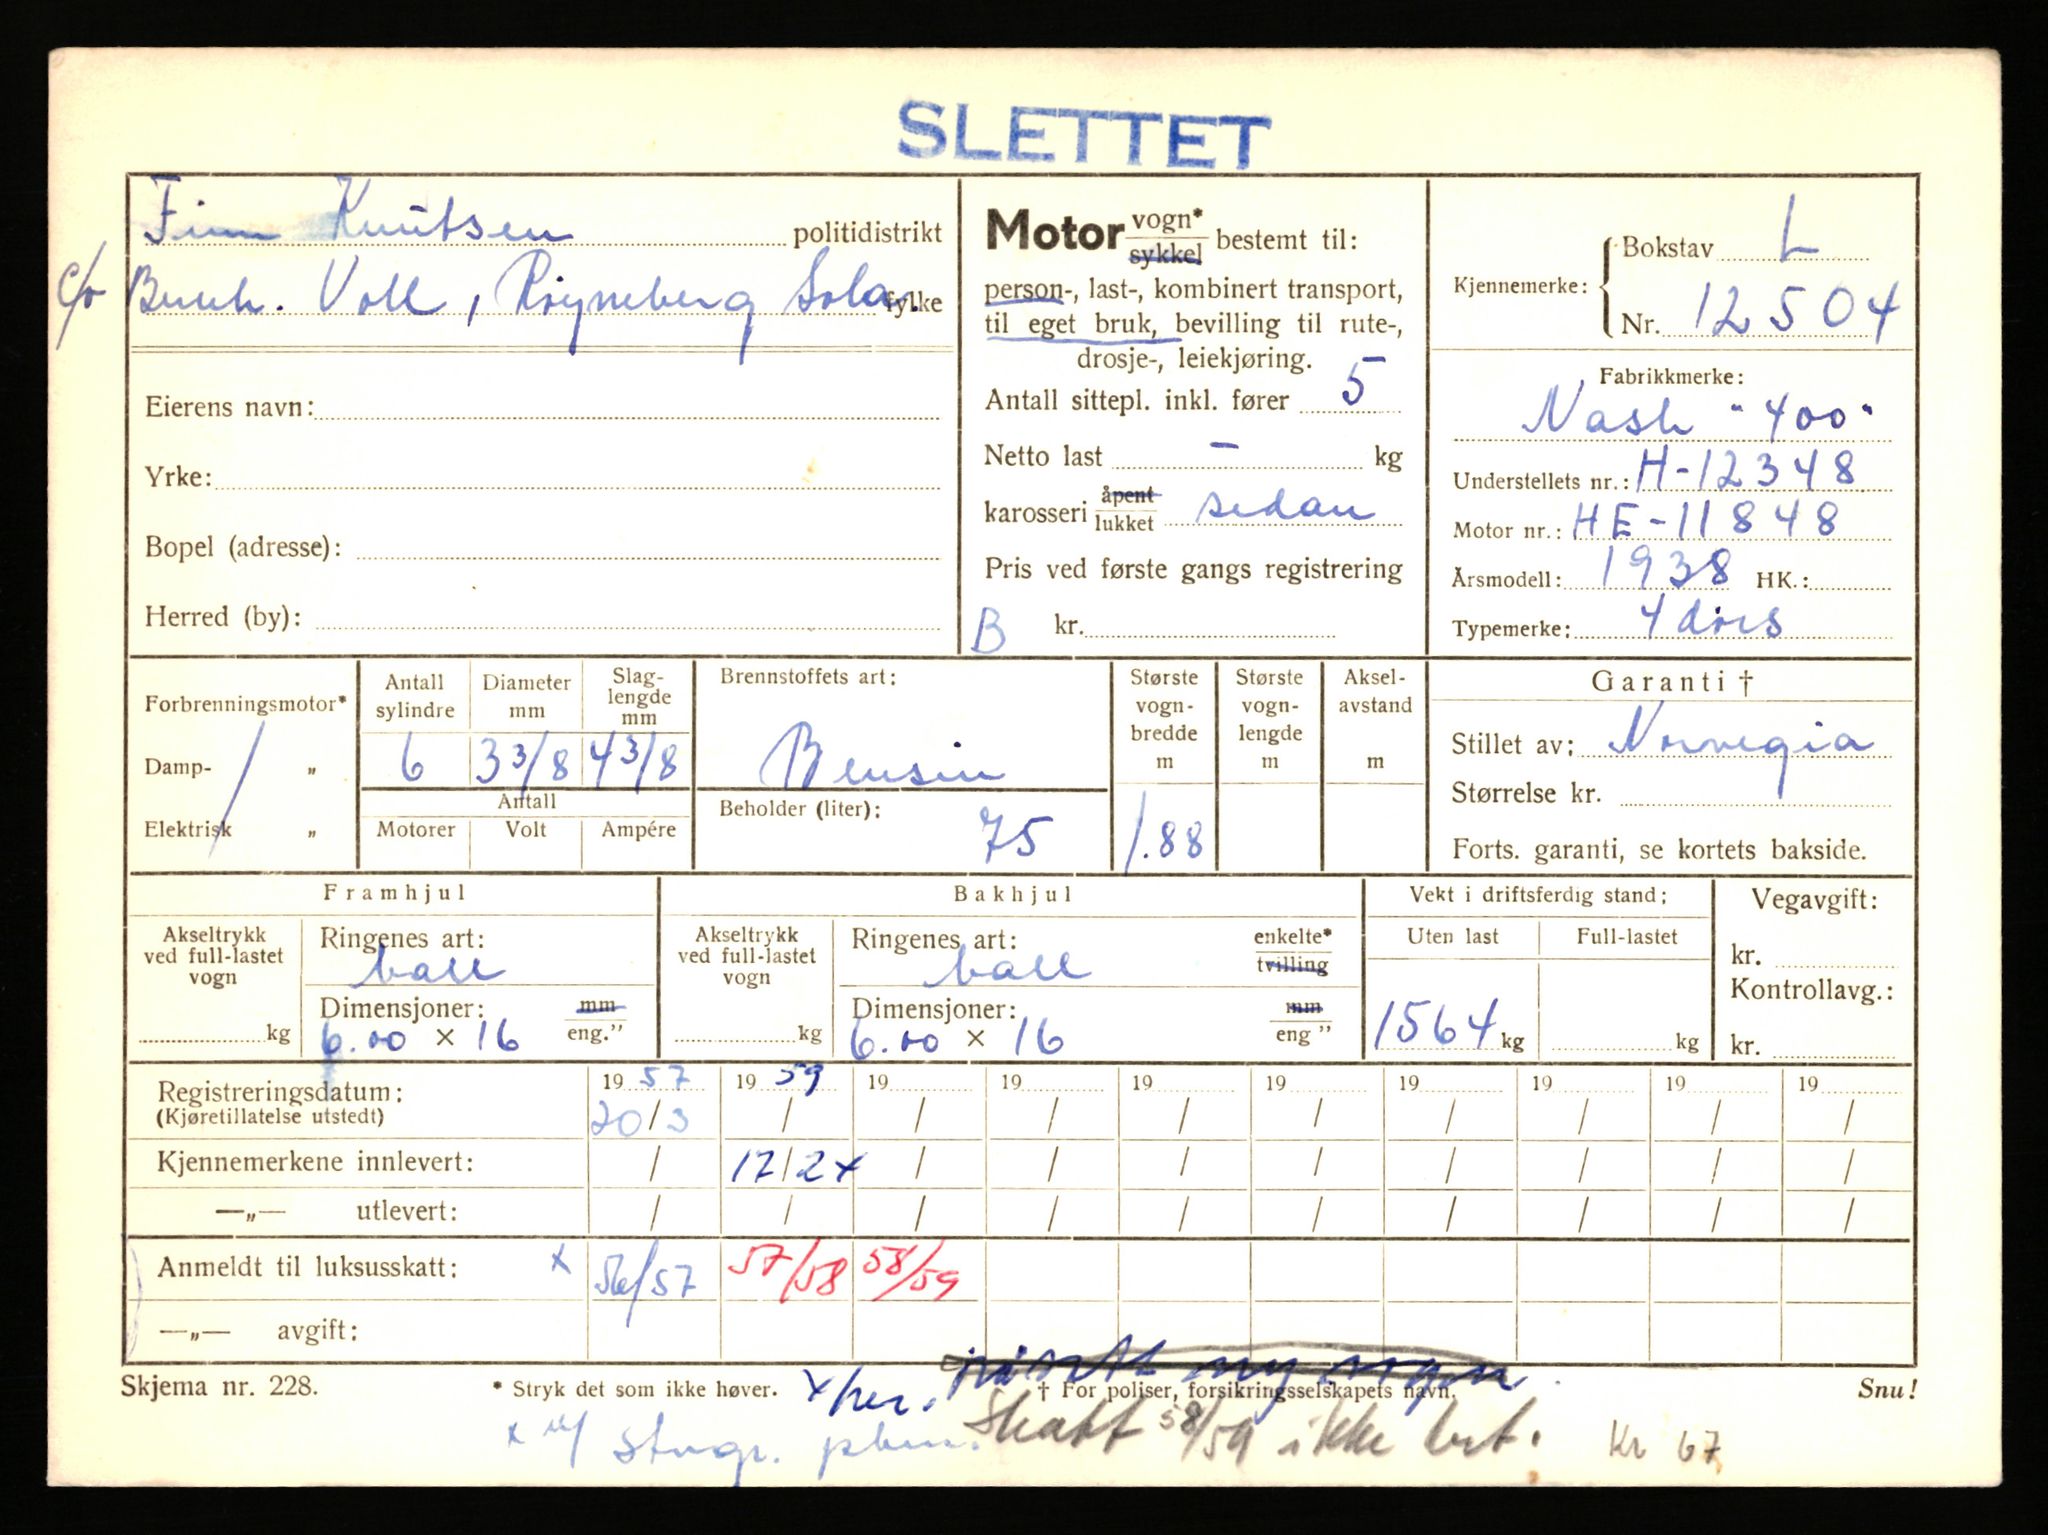 SLETTET
Finn Knutsen politidistrikt
c/o Voll, Røyneberg Sola. fylke
Eierens navn:
Yrke:
Bopel (adresse):
Herred (by):
Motor vogn* sykkel bestemt til:
person-, last-, kombinert transport,
til eget bruk, bevilling til rute-,
drosje-, leiekjøring.
Antall sittepl. inkl. fører 5
Netto last - kg
karosseri åpent lukket sedan
Pris ved første gangs registrering
B kr.
Kjennemerke: Bokstav L
Nr. 12504
Fabrikkmerke:
Nash "400"
Understellets nr.: H-12348
Motor nr.: HE-11848
Årsmodell: 1938 HK.:
Typemerke: 4 dørs
Forbrenningsmotor*
Damp- „
Elektrisk „
Antall sylindre Diameter mm Slag-lengde mm
6 3 3/8 4 3/8
Antall
Motorer Volt Ampére
Brennstoffets art:
Bensin
Beholder (liter):
75
Største vogn-bredde m
1.88
Største vogn-lengde m
Aksel-avstand m
Garanti †
Stillet av: Norvegia
Størrelse kr.
Forts. garanti, se kortets bakside.
Framhjul
Akseltrykk ved full-lastet vogn
kg
Ringenes art:
ball
Dimensjoner: mm
6.00 × 16 eng.”
Bakhjul
Akseltrykk ved full-lastet vogn
kg
Ringenes art: enkelte*
ball tvilling
Dimensjoner: mm
6.00 × 16 eng ”
Vekt i driftsferdig stand:
Uten last Full-lastet
1564 kg kg
Vegavgift:
kr.
Kontrollavg.:
kr.
Registreringsdatum: 19 57 19 59 19 19 19 19 19 19 19 19
(Kjøretillatelse utstedt) 20/3 / / / / / / / / /
Kjennemerkene innlevert: / 17/2 x / / / / / / / /
—„— utlevert: / / / / / / / / / /
Anmeldt til luksusskatt: x 56/57 57/58 58/59
—„— avgift:
Skjema nr. 228. * Stryk det som ikke høver. x her. † For poliser, forsikringsselskapets navn. Snu!
x Skatt 58/59 ikke bet. Kr 67